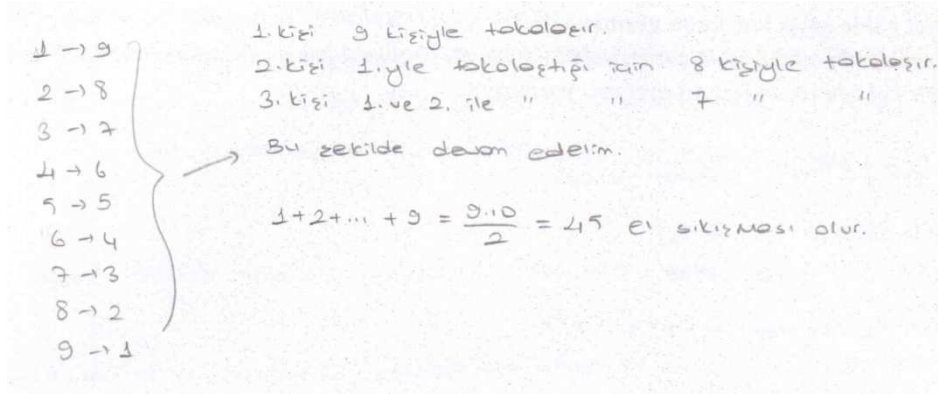 1 → 9
2 → 8
3 → 7
4 → 6
5 → 5
6 → 4
7 → 3
8 → 2
9 → 1
1. kişi 9 kişiyle tokalaşır
2. kişi 1.yle tokalaştığı için 8 kişiyle tokalaşır.
3. kişi 1. ve 2. ile " " 7 " "
Bu şekilde devam edelim.
1+2+... +9 = 9.10/2 = 45 el sıkışması olur.